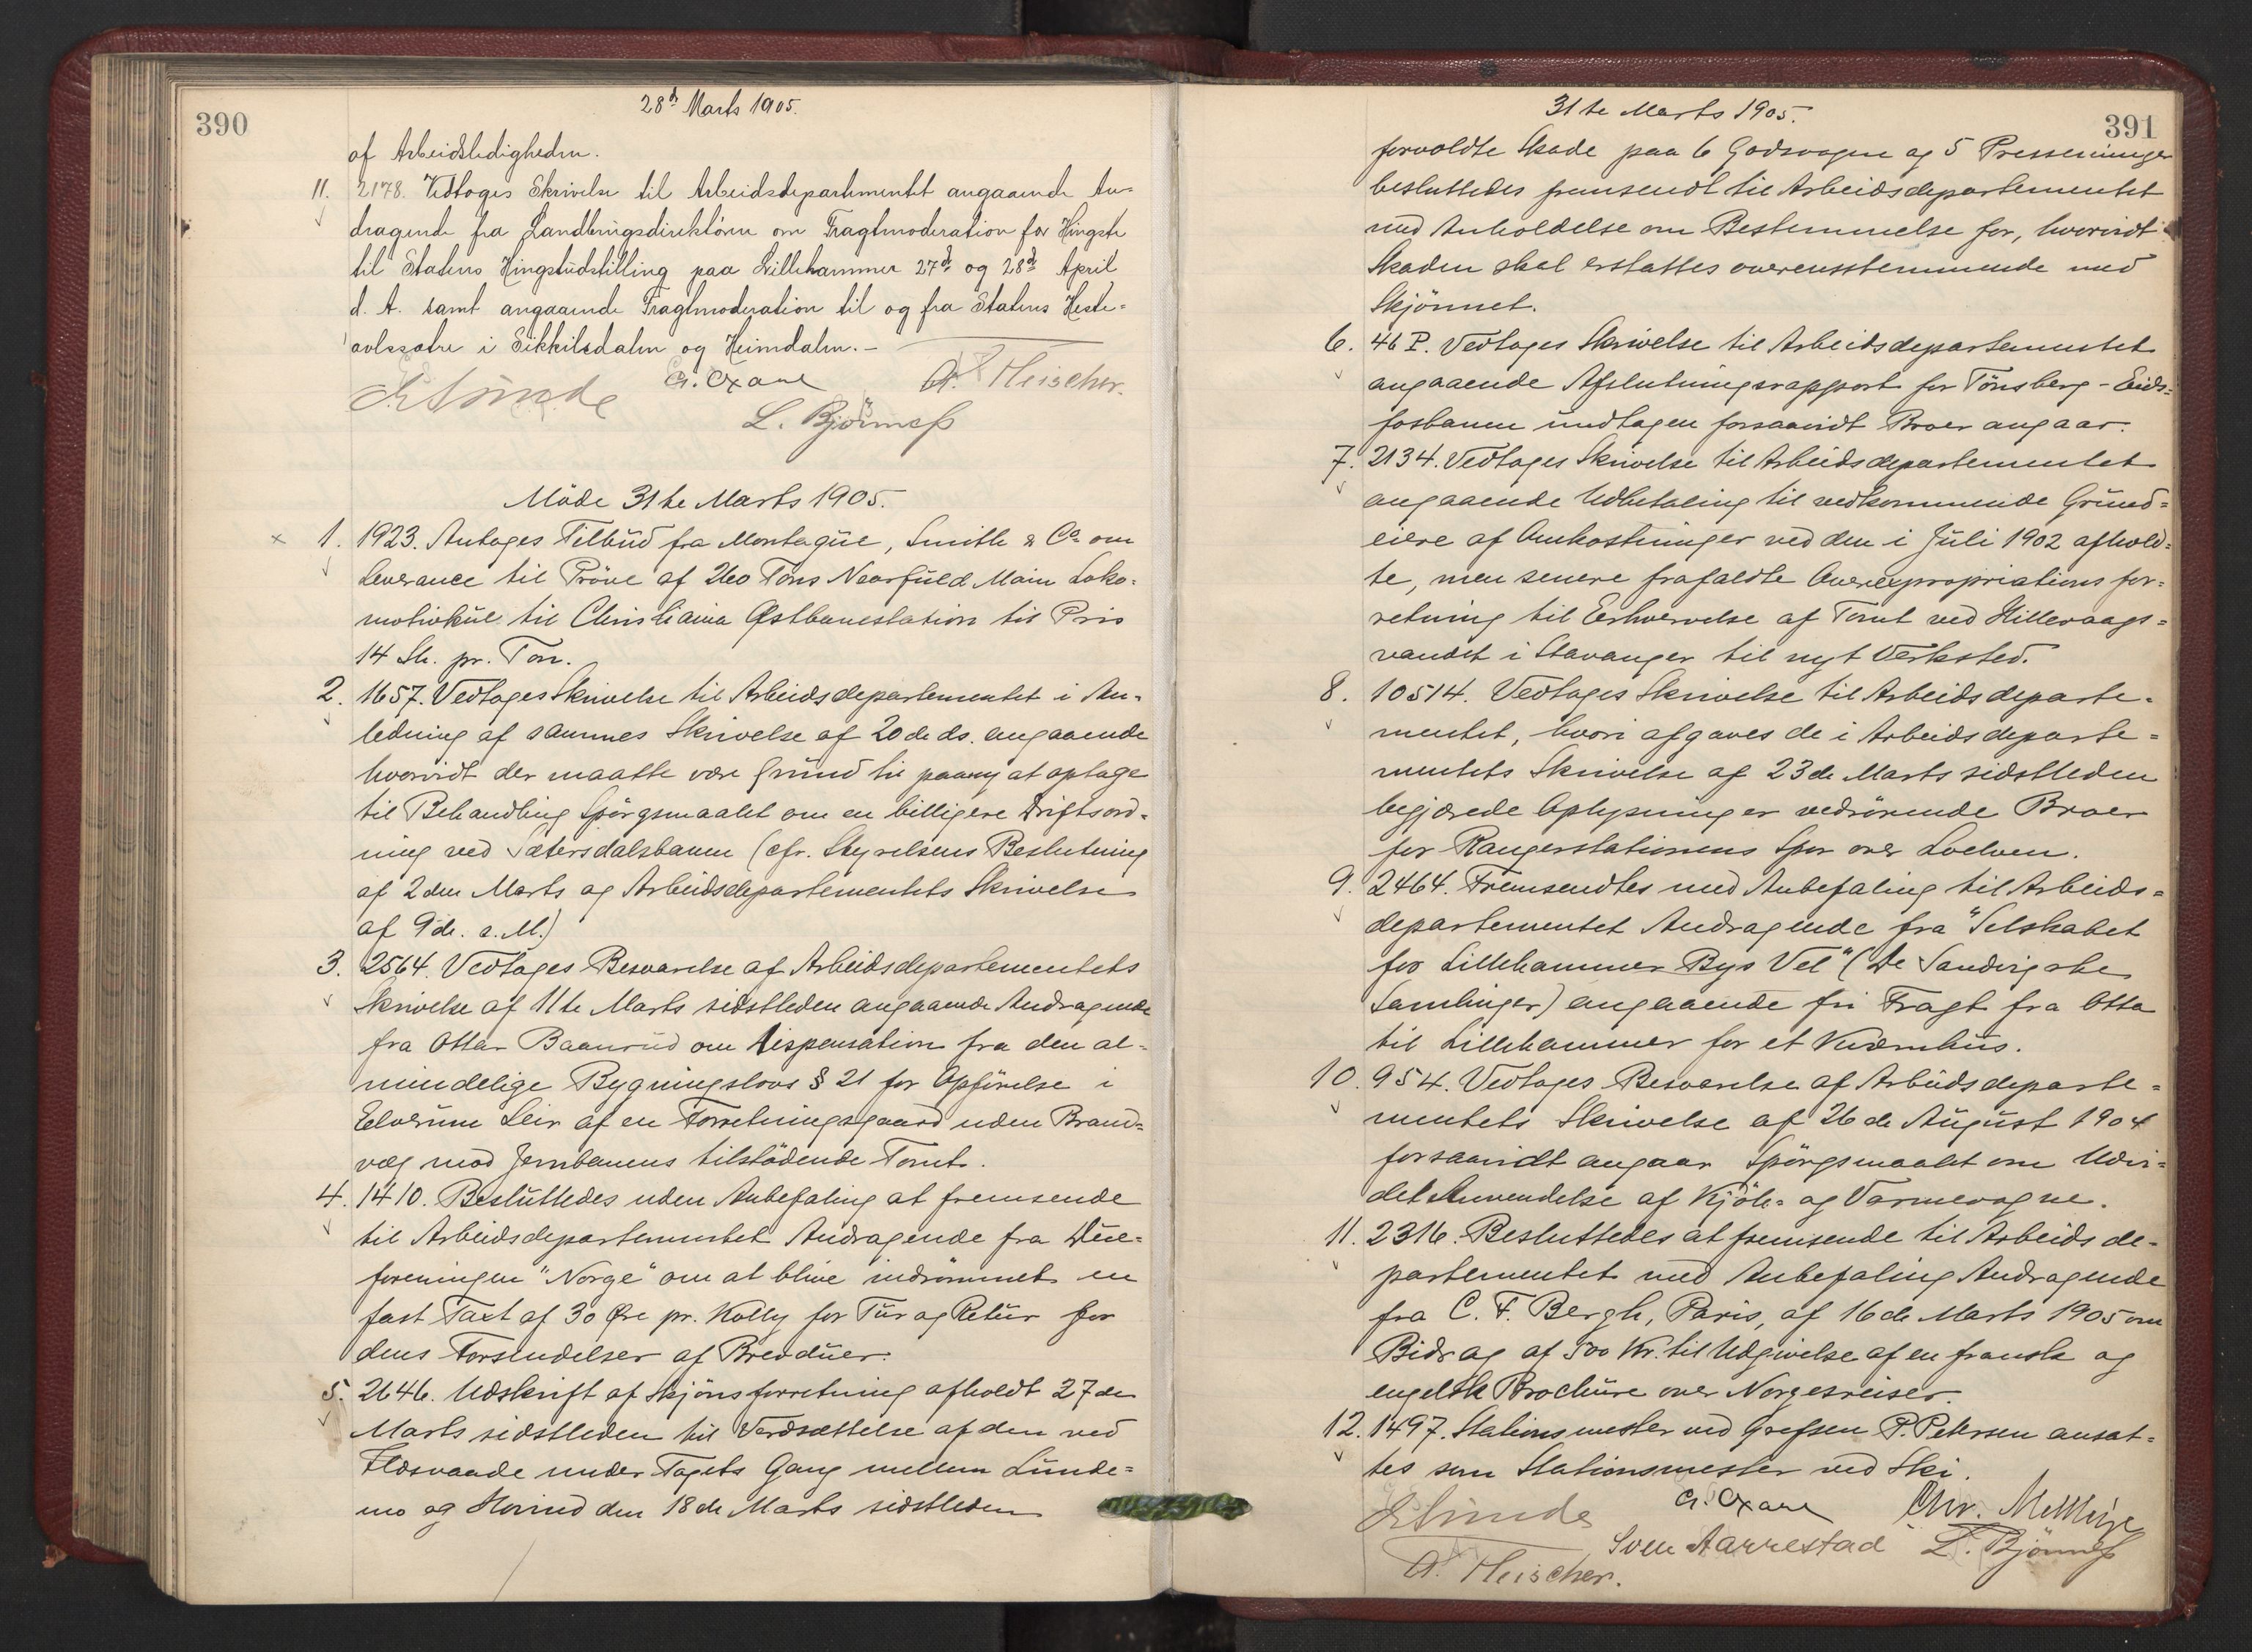 390
28d Marts 1905.
af Arbeidsledigheden.
11. 2178. Vedtoges Skrivelse til Arbeidsdepartementet angaaende An-
dragende fra Landbrugsdirektøren om Fragtmoderation for Hingste
til Statens Hingstudstilling paa Lillehammer 27de og 28de April
d. A. samt angaaende Fragtmoderation til og fra Statens Heste-
avlssætre i Sikkilsdalen og Heimdalen. —
G. Oxaal
A. Fleischer.
L. Bjørness
Møde 31te Marts 1905.
× 1. 1923. Antoges Tilbud fra Montague, Smith & Co. om
Leverance til Prøve af 260 Tons Nearfield Main Loko-
motivkul til Christiania Østbanestation til Pris
14 Sh. pr. Ton.
2. 1657. Vedtoges Skrivelse til Arbeidsdepartementet i An-
ledning af sammes Skrivelse af 20de ds. angaaende
hvorvidt der maatte være Grund til paany at optage
til Behandling Spörgsmaalet om en billigere Driftsord-
ning ved Sætersdalsbanen (cfr. Styrelsens Beslutning
af 2den Marts og Arbeidsdepartementets Skrivelse
af 9de s. M.)
3. 2564. Vedtoges Besvarelse af Arbeidsdepartementets
Skrivelse af 11te Marts sidstleden angaaende Andragende
fra Ottar Baanrud om Dispensation fra den al-
mindelige Bygningslovs § 21 for Opförelse i
Elverum Leir af en Forretningsgaard uden Brand-
væg mod Jernbanens tilstödende Tomt.
4. 1410. Besluttedes uden Anbefaling at fremsende
til Arbeidsdepartementet Andragende fra Due-
foreningen "Norge" om at blive indrömmet en
fast Taxt af 30 Øre pr. Kolly for Tur og Retur for
dens Forsendelser af Brevduer.
5. 2646. Udskrift af Skjönsforretning afholdt 27de
Marts sidstleden til Værdsættelse af den ved
Ildsvaade under Togets Gang mellem Lunde-
mo og Hovind den 18de Marts sidstleden
31te Marts 1905.
391
forvoldte Skade paa 6 Godsvogne og 5 Presseninger
besluttedes fremsendt til Arbeidsdepartementet
med Anholdelse om Bestemmelse for, hvorvidt
Skaden skal erstattes overensstemmende med
Skjönnet.
6. 46 P. Vedtoges Skrivelse til Arbeidsdepartementet
angaaende Afslutningsrapport for Tönsberg-Eids-
fosbanen undtagen forsaavidt Broer angaar.
7. 2134. Vedtoges Skrivelse til Arbeidsdepartementet
angaaende Udbetaling til vedkommende Grund-
eiere af Omkostninger ved den i Juli 1902 afhold-
te, men senere frafaldte Overexpropriationsfor-
retning til Erhvervelse af Tomt ved Hillevaags-
vandet i Stavanger til nyt Verksted.
8. 10514. Vedtoges Skrivelse til Arbeidsdeparte-
mentet, hvori afgaves de i Arbeidsdeparte-
mentets Skrivelse af 23de Marts sidstleden
begjærede Oplysninger vedrörende Broer
for Rangerstationens Spor over Loelven.
9. 2464. Fremsendtes med Anbefaling til Arbeids-
departementet Andragende fra "Selskabet
for Lillehammer Bys Vel" (De Sandvigske
Samlinger) angaaende fri Fragt fra Otta
til Lillehammer for et Kværnhus.
10. 954. Vedtoges Besvarelse af Arbeidsdeparte-
mentets Skrivelse af 26de August 1904
forsaavidt angaar Spörgsmaalet om Udvi-
det Anvendelse af Kjöle- og Varmevogne.
11. 2316. Besluttedes at fremsende til Arbeidsde-
partementet med Anbefaling Andragende
fra C. F. Bergh, Paris, af 16de Marts 1905 om
Bidrag af 500 Kr. til Udgivelse af en fransk og
engelsk Brochure over Norgesreiser.
12. 1497. Stationsmester ved Grefsen P. Petersen ansat-
tes som Stationsmester ved Ski.
G. Oxaal
Chr.
Sven Aarrestad
L. Bjørness
A. Fleischer.